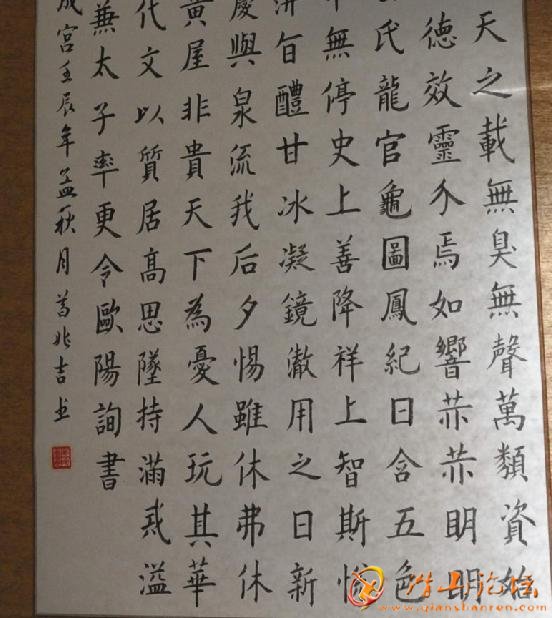 天之載無臭無聲萬類資始
德效靈介焉如響赫赫明明
氏龍官龜圖鳳紀日含五色
無停史上善降祥上智斯悅
旨醴甘冰凝鏡澈用之日新
慶與泉流我后夕惕雖休弗休
黃屋非貴天下為憂人玩其華
代文以質居高思墜持滿戒溢
兼太子率更令歐陽詢書
成宮壬辰年孟秋月葛兆吉书
潜山论坛
www.qianshanren.com